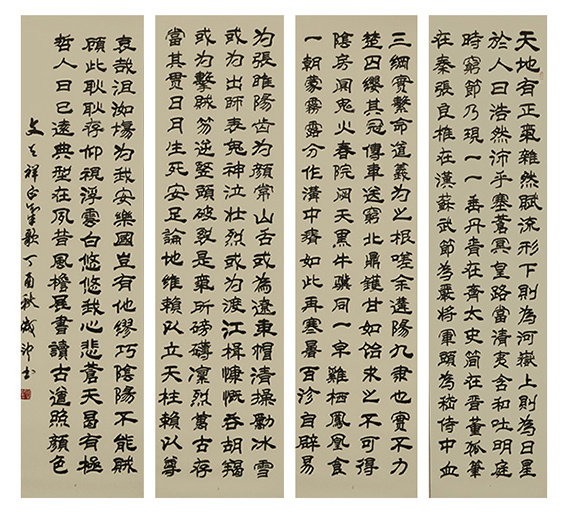 天地有正氣雜然賦流形下則為河嶽上則為日星
於人曰浩然沛乎塞蒼冥皇路當清夷含和吐明庭
時窮節乃現一一垂丹青在齊太史簡在晉董狐筆
在秦張良椎在漢蘇武節為嚴將軍頭為嵇侍中血
三綱實繫命道義為之根嗟余遘陽九隸也實不力
楚囚纓其冠傳車送窮北鼎鑊甘如飴求之不可得
陰房闃鬼火春院閟天黑牛驥同一皁雞栖鳳凰食
一朝蒙霧露分作溝中瘠如此再寒暑百沴自辟易
為張睢陽齒為顏常山舌或為遼東帽清操勵冰雪
或為出師表鬼神泣壯烈或為渡江楫慷慨吞胡羯
或為擊賊笏逆豎頭破裂是氣所磅礴凜烈萬古存
當其貫日月生死安足論地維賴以立天柱賴以尊
哀哉沮洳場為我安樂國豈有他繆巧陰陽不能賊
顧此耿耿存仰視浮雲白悠悠我心悲蒼天曷有極
哲人日已遠典型在夙昔風檐展書讀古道照顏色
文天祥正氣歌丁酉秋書